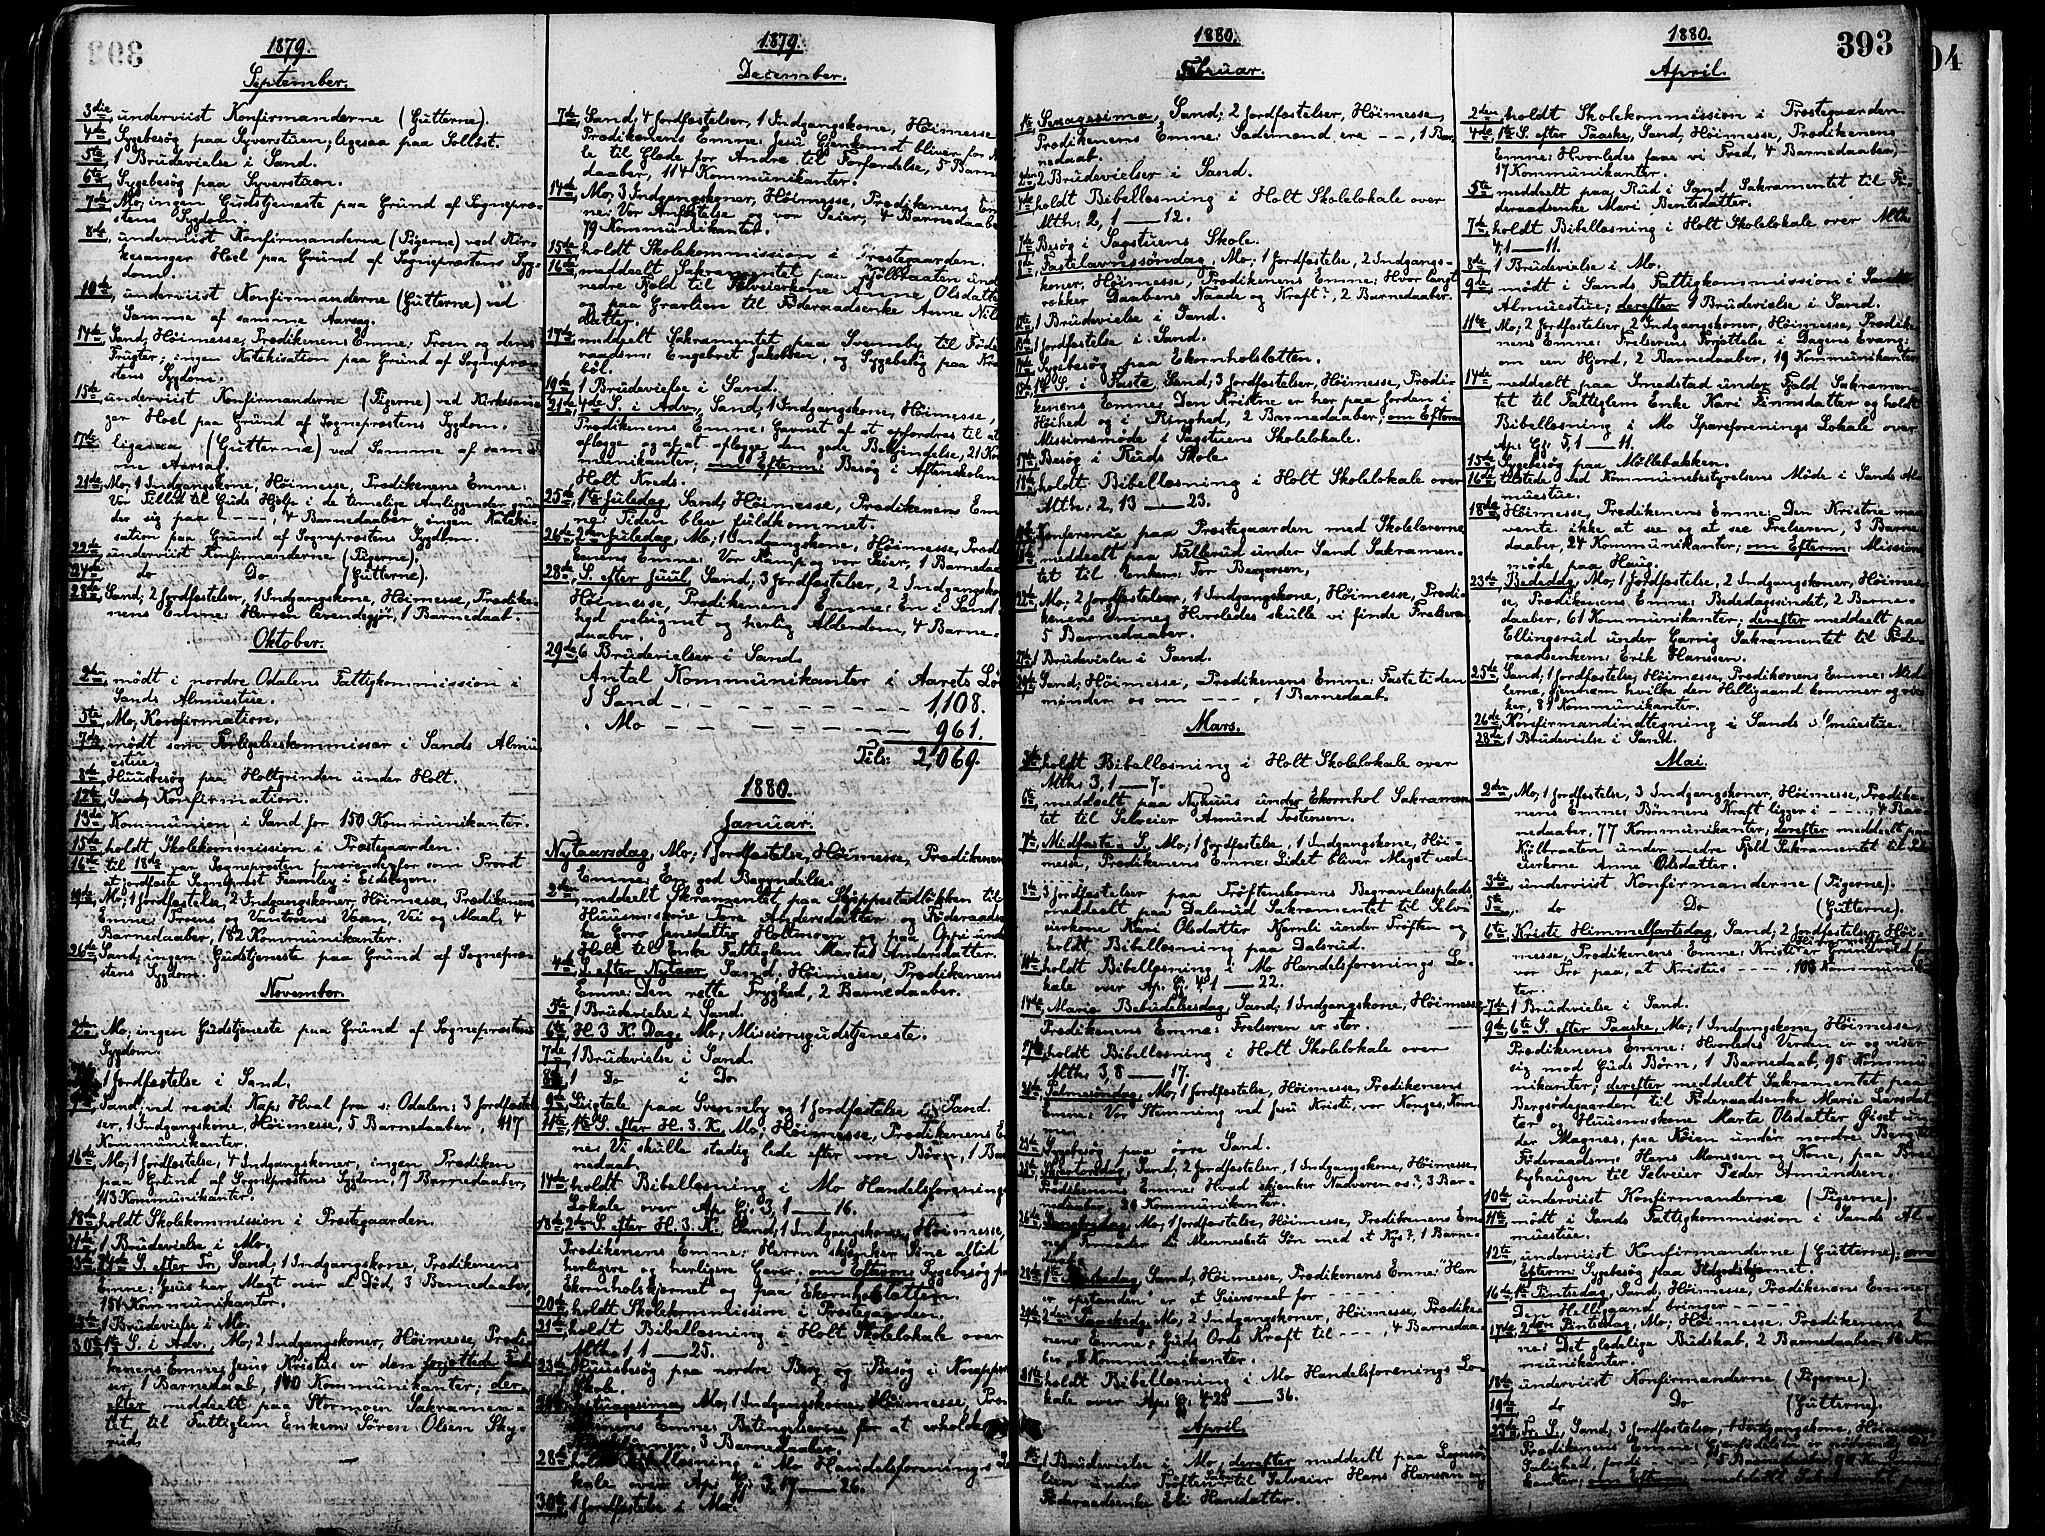 1879.
September.
3die, underviist Konfirmanderne (Gutterne).
4de, Sygebesøg paa Syverstuen; ligesaa paa Sollöst.
5te, 1 Brudevielse i Sand.
6te, Sygebesøg paa Syverstuen.
7de, Mo; ingen Gudstjeneste paa Grund af Sognepræ-
stens Sygdom.
8de, underviist Konfirmanderne (Pigerne) ved Kir-
kesanger Hoel paa Grund af Sognepræstens Syg-
dom.
10de, underviist Konfirmanderne (Gutterne) ved
Samme af samme Aarsag.
14de, Sand, Høimesse, Prædikenens Emne: Troen og dens
Frugter; ingen Katekisation paa Grund af Sognepræ-
stens Sygdom.
15de, underviist Konfirmanderne (Pigerne) ved Kirkesan-
ger Hoel paa Grund af Sognepræstens Sygdom.
17de, ligesaa (Gutterne) ved Samme af sam-
me Aarsag.
21de, Mo; 1 Indgangskone, Høimesse, Prædikenens Emne:
Vor Tillid til Guds Hjælp i de timelige Anliggender grun-
der sig paa - - - -, 4 Barnedaaber, ingen Kateki-
sation paa Grund af Sognepræstens Sygdom.
22de, underviist Konfirmanderne (Pigerne).
24de, do Do (Gutterne).
28de, Sand, 2 Jordfæstelser, 1 Indgangskone, Høimesse, Prædike-
nens Emne: Herren levendegjør, 1 Barnedaab.
Oktober.
2den, mödt i nordre Odalens Fattigkommission i
Sands Almuestue.
5te, Mo, Konfirmation.
7de, mödt som Forligelseskommissær i Sands Almu-
estue.
8de, Huusbesøg paa Holtgrinden under Holt.
12te, Sand, Konfirmation.
13de, Kommunion i Sand for 150 Kommunikanter.
15de, holdt Skolekommission i Præstegaarden.
16de til 18de var Sognepræsten fraværende for som Provst
at jordfæste Sognepræst Framley i Eidskogen.
19de, Mo; 1 Jordfæstelse, 2 Indgangskoner, Høimesse, Prædikenens
Emne: Troens og Vantroens Væsen, Vei og Maal, 4
Barnedaaber, 182 Kommunikanter.
26de, Sand; ingen Gudstjeneste paa Grund af Sognepræ-
stens Sygdom.
November.
2den, Mo; ingen Gudstjeneste paa Grund af Sognepræstens
Sygdom.
1 Jordfæstelse i Sand.
9de, Sand; ved resid. Kap. Hval fra s: Odalen; 3 Jordfæstel-
ser, 1 Indgangskone, Høimesse, 5 Barnedaaber, 117
Kommunikanter.
16de, Mo; 1 Jordfæstelse, 4 Indgangskoner, ingen Prædiken
paa Grund af Sognepræstens Sygdom, 7 Barnedaaber,
113 Kommunikanter.
18de, holdt Skolekommission i Præstegaarden.
21de, 1 Brudevielse i Mo.
23de, 24de S. efter Tr., Sand, 1 Indgangskone, Prædikenens
Emne: Jesus har Magt over al Död, 3 Barnedaaber,
151 Kommunikanter.
1 Brudevielse i Mo.
30te, 1ste S. i Adv., Mo; 2 Indgangskoner, Høimesse, Prædi-
kenens Emne: Jesus Kristus er den forjættede Frel-
ser, 1 Barnedaab, 140 Kommunikanter; der-
efter meddeelt paa Stormoen Sakramen-
tet til Fattiglem Enkem: Søren Olsen Sky-
rud.
1879.
December.
7de, Sand, 4 Jordfæstelser, 1 Indgangskone, Høimesse,
Prædikenens Emne: Jesu Gjenkomst bliver for No-
le til Glæde for Andre til Forfærdelse, 5 Barne-
daaber, 114 Kommunikanter.
14de, Mo, 3 Indgangskoner, Høimesse, Prædikenens Em-
ne: Vor Anfægtelse og vor Seier, 4 Barnedaaber,
79 Kommunikanter.
15de, holdt Skolekommission i Præstegaarden.
16de, meddeelt Sakramentet paa Kjölbraaten under
nedre Fjeld til Selveierkone Anne Olsdatter
og paa Gravlien til Föderaadsenke Anne Nils-
datter.
17de, meddeelt Sakramentet paa Svenneby til Föde-
raadsm: Engebret Jakobsen, og Sygebesøg paa
böl.
19de, 1 Brudevielse i Sand.
21de, 4de S. i Adv., Sand, 1 Indgangskone, Høimesse,
Prædikenens Emne: Gavnet af at opfordres til at
aflægge og af at aflægge den gode Bekjendelse, 21 Kom-
munikanter; om Efterm: Besøg i Aftenskolen i
Holt Kreds.
25de, 1ste Juledag, Sand, Høimesse, Prædikenens Em-
ne: Tiden blev fuldkommet.
26de, 2den Juledag, Mo; 1 Indgangskone, Høimesse, Prædi-
kenens Emne: Vor Kamp og vor Seier, 1 Barnedaab.
28de, S. efter Juul, Sand, 3 Jordfæstelser, 2 Indgangskoner,
Høimesse, Prædikenens Emne: En i Sand-
hed velsignet og herlig Alderdom, 4 Barne-
daaber.
29de, 6 Brudevielser i Sand.
Antal Kommunikanter i Aarets Løb
I Sand - - - - - - - 1,108.
" Mo - - - - - - - 961.
Tils: 2,069.
1880.
Januar.
Nytaarsdag, Mo; 1 Jordfæstelse, Høimesse, Prædikenens
Emne: En god Begyndelse.
2den, meddeelt Sakramentet paa Skjøppestadløkken til
Huusmskone Sare Andersdatter og Föderaadsen-
ke Goro Jensdatter Holtmoen og paa Opsi under
Holt til Enke Fattiglem Martas Andersdatter.
4de, S. efter Nytaar, Sand, Høimesse, Prædikenens
Emne: Den rette Tryghed, 2 Barnedaaber.
5te, 1 Brudevielse i Sand.
6te, H. 3 K. Dag, Mo; Missionsgudstjeneste.
7de, 1 Brudevielse i Sand.
8de, 1 Do i Do
9de, Ligtale paa Svenneby og 1 Jordfæstelse i Sand.
11te, 1ste S. efter H. 3. K., Mo; Høimesse, Prædikenens Em-
ne: Vi skulle stadig lede efter vore Børn, 1 Bar-
nedaab.
14de, holdt Bibellæsning i Mo Handelsforenings
Lokale over Ap. Gj. 3, 1 — 16.
18de, 2den S. efter H. 3. K., Sand, 1 Indgangskone, Høimesse,
Prædikenens Emne: Herren skjænker Sine altid
herligere og herligere Gaver; om Efterm: Sygebesøg paa
Ekornholskjernet og paa Ekornholslotten.
20de, holdt Skolekommission i Præstegaarden.
21de, holdt Bibellæsning i Holt Skolelokale over
Mth. 1, 1 — 25.
23de, Huusbesøg paa nordre Berg og Besøg i Knapper
Skole.
Septuagesima, Mo; 1 Indgangskone, Høimesse, Præ-
dikenens Emne: Betingelserne for at erholde
3 Barnedaaber.
28de, holdt Bibellæsning i Mo Handelsforenings Lo-
kale over Ap. Gj. 3, 17 — 26.
30te, 1 Jordfæstelse i Mo.
1880.
Februar.
1ste, Sexagesima, Sand; 2 Jordfæstelser, Høimesse,
Prædikenens Emne: Sædemænd ere - - -, 1 Bar-
nedaab.
2den, 2 Brudevielser i Sand.
4de, holdt Bibellæsning i Holt Skolelokale over
Mth. 2, 1 — 12.
7de, Besøg i Sagstuens Skole.
8de, Fastelavnssøndag, Mo; 1 Jordfæstelse, 2 Indgangs-
koner, Høimesse, Prædikenens Emne: Hvor langt
rækker Daabens Naade og Kraft?, 2 Barnedaaber.
1 Brudevielse i Sand.
1 Jordfæstelse i Sand.
Sygebesøg paa Ekornholslotten.
15de, 1ste S. i Faste, Sand; 3 Jordfæstelser, Høimesse, Prædi-
kenens Emne: Den Kristne er her paa Jorden i
Høihed og i Ringhed, 2 Barnedaaber; om Efterm:
Missionsmøde i Sagstuens Skolelokale.
17de, Besøg i Ruds Skole.
18de, holdt Bibellæsning i Holt Skolelokale over
Mth. 2, 13 — 23.
Konference paa Præstegaarden med Skolelærerne.
meddeelt paa Tullerud under Sand Sakramen-
tet til Enkem: Tor Bergersen.
22de, Mo; 2 Jordfæstelser, 1 Indgangskone, Høimesse, Prædi-
kenens Emne: Hvorledes skulle vi finde Frelseren,
5 Barnedaaber.
1 Brudevielse i Sand.
29de, Sand, Høimesse, Prædikenens Emne: Fastetiden
minder os om - - -, 1 Barnedaab.
Mars.
holdt Bibellæsning i Holt Skolelokale over
Mth. 3, 1 — 7.
6te, meddeelt paa Nyhuus under Ekornhol Sakramen-
tet til Selveier Amund Tostensen.
7de, Midfaste-S., Mo; 1 Jordfæstelse, 1 Indgangskone, Høi-
messe, Prædikenens Emne: Lidet bliver Meget ved -
8de, 3 Jordfæstelser paa Trøftskovens Begravelsesplads,
meddeelt paa Dalsrud Sakramentet til Selv-
eierkone Kari Olsdatter Kjernli under Trøften og
holdt Bibellæsning paa Dalsrud.
10de, holdt Bibellæsning i Mo Handelsforenings Lo-
kale over Ap. Gj. 4, 1 — 22.
14de, Mariæ Bebudelsesdag, Sand, 1 Indgangskone, Høimesse,
Prædikenens Emne: Frelseren er stor.
17de, holdt Bibellæsning i Holt Skolelokale over
Mth. 3, 8 — 17.
21de, Palmesøndag, Mo, 1 Jordfæstelse, Høimesse, Prædikenens
Emne: Vor Stemning ved Jesu Kristi, vor Konges, Kom-
me.
23de, Sygebesøg paa øvre Sand.
25de, Skjærtorsdag, Sand, 2 Jordfæstelser, 1 Indgangskone, Høimesse,
Prædikenens Emne: Hvad skjænker Nadveren os?, 3 Bar-
nedaaber, 26 Kommunikanter.
26de, Langfredag, Mo, 1 Jordfæstelse, Høimesse, Prædikenens Em-
ne: Forraader du Menneskets Søn med et Kys?, 1 Barne-
daab.
28de, 1ste Paaskedag, Sand, Høimesse, Prædikenens Emne: "Han
er opstanden" er et Seiersraab for - - - -
29de, 2den Paaskedag, Mo; 2 Indgangskoner, Høimesse, Prædike-
nens Emne: Guds Ords Kraft til - - -, 4 Barnedaa-
ber, 8 Kommunikanter.
31te, holdt Bibellæsning i Mo Handelsforenings Lo-
kale over Ap. Gj. 4, 23 — 36.
April.
1ste, 1 Brudevielse i Mo, derefter meddeelt paa Lognsø-
lien under Trøften Sakr. til Selveier Hans Hansen og
Föderaadsenke Eli Hansdatter.
1880.
393
April.
2den, holdt Skolekommission i Præstegaarden.
4de, 1ste S. efter Paaske, Sand, Høimesse, Prædikenens
Emne: Hvorledes faae vi Fred, 4 Barnedaaber,
17 Kommunikanter.
5te, meddeelt paa Rud i Sand Sakramentet til Fö-
deraadsenke Mari Berntsdatter.
7de, holdt Bibellæsning i Holt Skolelokale over Mth.
4, 1 — 11.
8de, 1 Brudevielse i Mo.
9de, mødt i Sands Fattigkommission i Sands
Almuestue; derefter 1 Brudevielse i Sand.
11te, Mo; 2 Jordfæstelser, 2 Indgangskoner, Høimesse, Prædike-
nens Emne: Frelserens Forjættelse i Dagens Evang:
om een Hjord, 2 Barnedaaber, 19 Kommunikanter.
14de, meddeelt paa Smedstad under Fjeld Sakramen-
tet til Fattiglem Enke Kari Finnsdatter og holdt
Bibellæsning i Mo Spareforenings Lokale over
Ap. Gj. 5, 1 — 11.
15de, Sygebesøg paa Møllebakken.
16de, tilstede ved Kommunebestyrelsens Møde i Sands Al-
muestue.
18de, Høimesse, Prædikenens Emne: Den Kristne maa
vente ikke at see og at see Frelseren, 3 Barne-
daaber, 24 Kommunikanter; om Efterm: Missions-
møde paa Haug.
23de, Bededag, Mo, 1 Jordfæstelse, 2 Indgangskoner, Høimes-
se, Prædikenens Emne: Bededagssindet, 2 Barne-
daaber, 61 Kommunikanter; derefter meddeelt paa
Ellingsrud under Garvig Sakramentet til Föde-
raadsenkem: Erik Hanssen.
25de, Sand, 1 Jordfæstelse, Høimesse, Prædikenens Emne: Mid-
lerne, gjennem hvilke den Helligaand kommer og vir-
ker, 81 Kommunikanter.
26de, Konfirmandindtegning i Sands Almuestue.
28de, 1 Brudevielse i Sand.
Mai.
2den, Mo, 1 Jordfæstelse, 3 Indgangskoner, Høimesse, Prædike-
nens Emne: Bønnens Kraft ligger i - - - -, 4 Bar-
nedaaber, 77 Kommunikanter, derefter meddeelt paa
Kjölbraaten under nedre Fjeld Sakramentet til Selv-
eierkone Anne Olsdatter.
3die, underviist Konfirmanderne (Pigerne).
5te, do Do (Gutterne).
6te, Kristi Himmelfartsdag, Sand; 2 Jordfæstelser, Høi-
messe, Prædikenens Emne: Kristi Himmelfart er Grundvold for
vor Tro paa, at Kristus - - - -, 103 Kommunikan-
ter.
7de, 1 Brudevielse i Sand.
9de, 6te S. efter Paaske, Mo; 1 Indgangskone, Høimesse,
Prædikenens Emne: Hvorledes Verden er og viser
sig mod Guds Børn, 1 Barnedaab, 95 Kommu-
nikanter; derefter meddeelt Sakramentet paa
Bergsødegaarden til Föderaadsenke Marie Larsdat-
ter og Huusmskone Marta Olsdatter Øiset un-
der Magnæs, paa Køien under nordre Berg til
Föderaadsm: Hans Monssen og Kone, paa
byhaugen til Selveier Peder Amundsen.
10de, underviist Konfirmanderne (Pigerne).
11te, mödt i Sands Fattigkommission i Sands Al-
muestue.
12te, underviist Konfirmanderne (Gutterne); om
Efterm: Sygebesøg paa
16de, 1ste Pintsedag, Sand, Høimesse, Prædikenens Emne:
Den Helligaand bringer - - - -
17de, 2den Pintsedag, Mo; Høimesse, Prædikenens Em-
ne: Det glædelige Budskab, 2 Barnedaaber, 16 Kom-
munikanter.
18de, underviist Konfirmanderne (Pigerne).
19de, do Do (Gutterne).
23de, Tr. S., Sand, 3 Jordfæstelser, 1 Indgangskone, Høimesse,
Prædikenens Emne: Gjenfødelsen er nødvendig til
Salighed, fordi - - -, 5 Barnedaaber, 90 Kommuni-
kanter; om Efterm: meddeelt Sakramentet